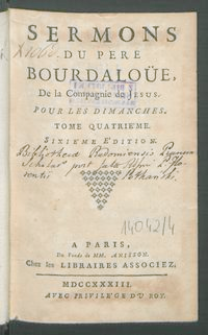 SERMONS
DU PERE
BOURDALOÜE,
De la Compagnie de JESUS.
POUR LES DIMANCHES.
TOME QUATRIEME.
SIXIEME EDITION.
Bibliothecæ Radomiensis
14042/4
A PARIS,
Au Fonds de MM. ANISSON.
Chez les LIBRAIRES ASSOCIEZ.
MDCCXXXIII.
AVEC PRIVILEGE DU ROY.